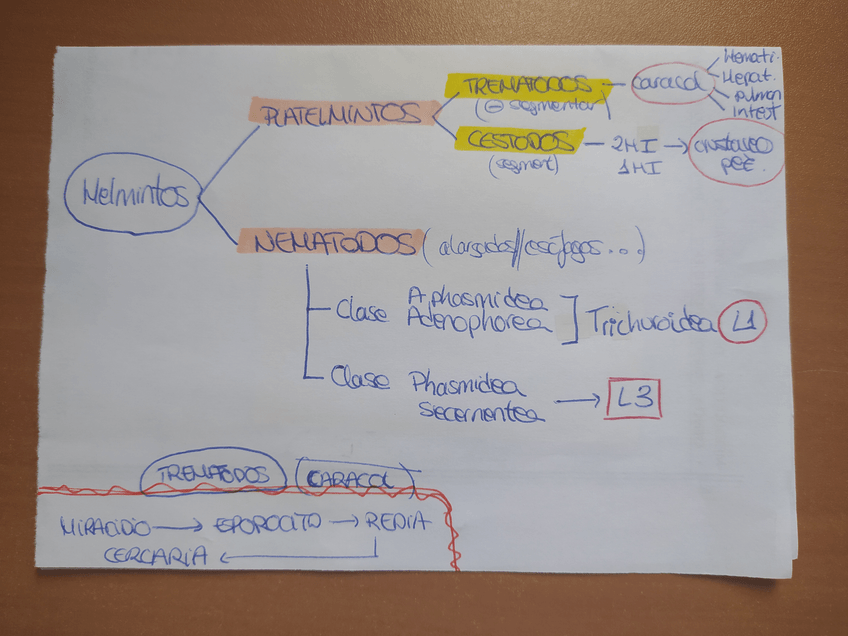 Helmintos
PLATELMINTOS
TREMATODOS
(⊖ segmentar)
caracol
Hemati.
Hepat.
pulmon
intest
CESTODOS
(segment)
2HI
1HI
NEMATODOS (alargados//esófagos...)
Clase Aphasmidea
Adenophorea
Trichuroidea L1
Clase Phasmidea
Secernentea
L3
TREMATODOS
CARACOL
MIRACIDIO → ESPOROCITO → REDIA
CERCARIA